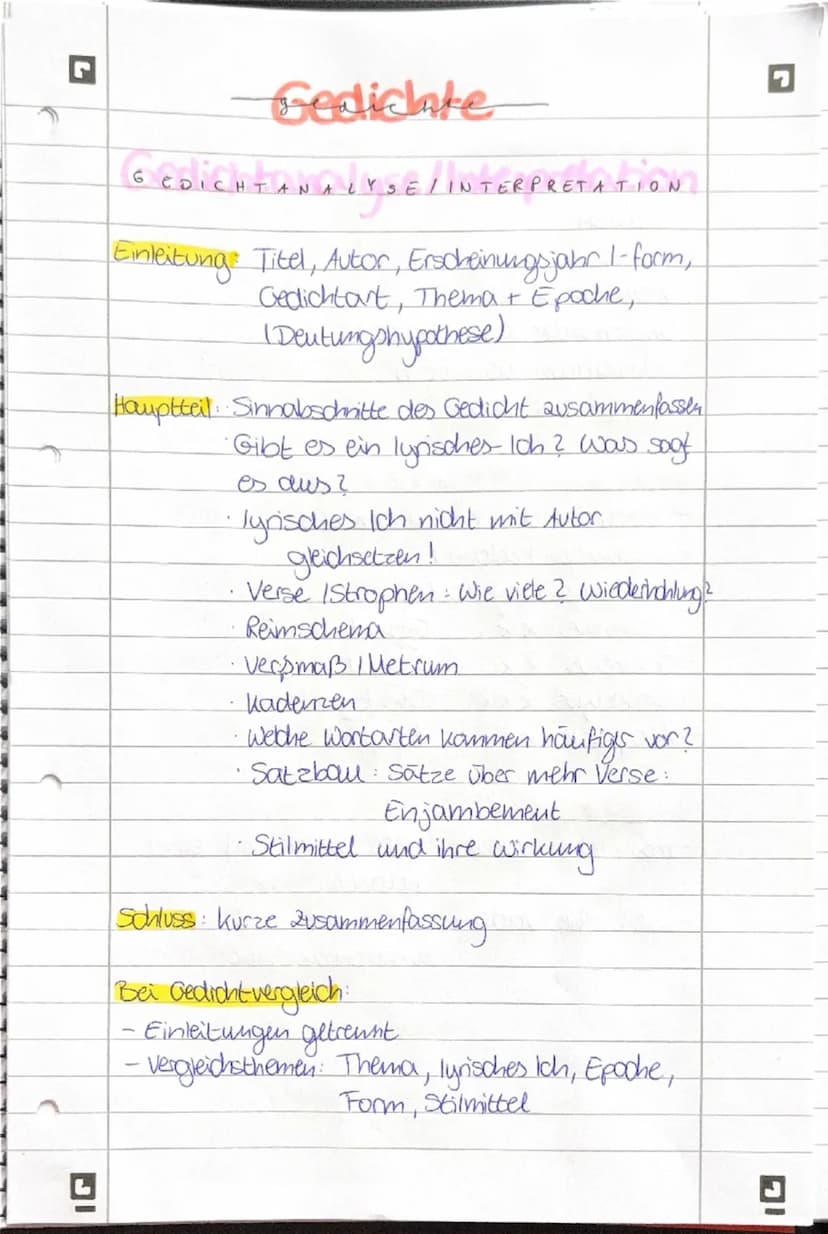 Gedichte
GEDICHTANALYSE/INTERPRETATION
Einleitung: Titel, Autor, Erscheinungsjahr/-form,
Gedichtart, Thema + Epoche,
(Deutungshypothese)
Hauptteil: · Sinnabschnitte des Gedicht zusammenfassen
· Gibt es ein lyrisches-Ich? Was sagt
es aus?
· lyrisches Ich nicht mit Autor
gleichsetzen!
· Verse/Strophen: Wie viele? Wiederhohlung?
· Reimschema
· Versmaß/Metrum
· Kadenzen
· Welche Wortarten kommen häufiger vor?
· Satzbau: Sätze über mehr Verse:
Enjambement
· Stilmittel und ihre Wirkung
Schluss: kurze Zusammenfassung
Bei Gedichtvergleich:
- Einleitungen getrennt
- Vergleichsthemen: Thema, lyrisches Ich, Epoche,
Form, Stilmittel